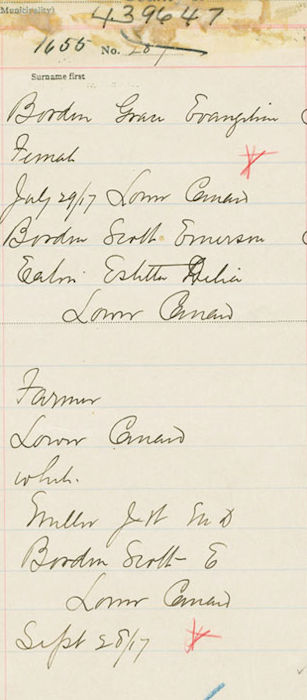 Municipality)
439647
1655 No. 287
Surname first
Borden Grace Evangeline
Female
July 29/17 Lower Canard
Borden Scott Emerson
Eaton Estella Delia
Lower Canard
Farmer
Lower Canard
white.
Miller J H M D
Borden Scott E
Lower Canard
Sept 28/17